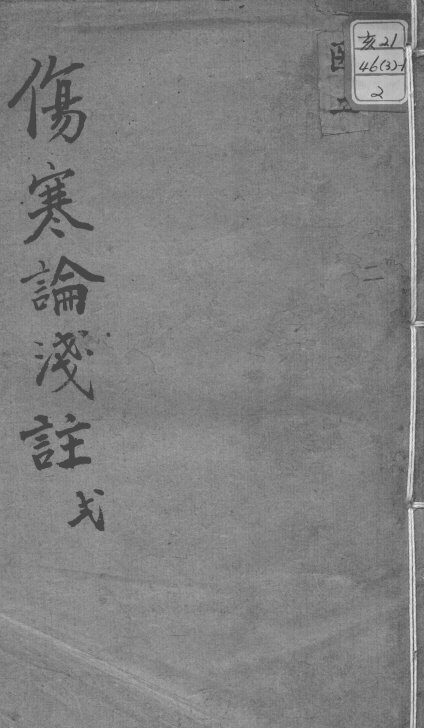 亥21
46(3)-1
2
二
傷寒論淺註
弍